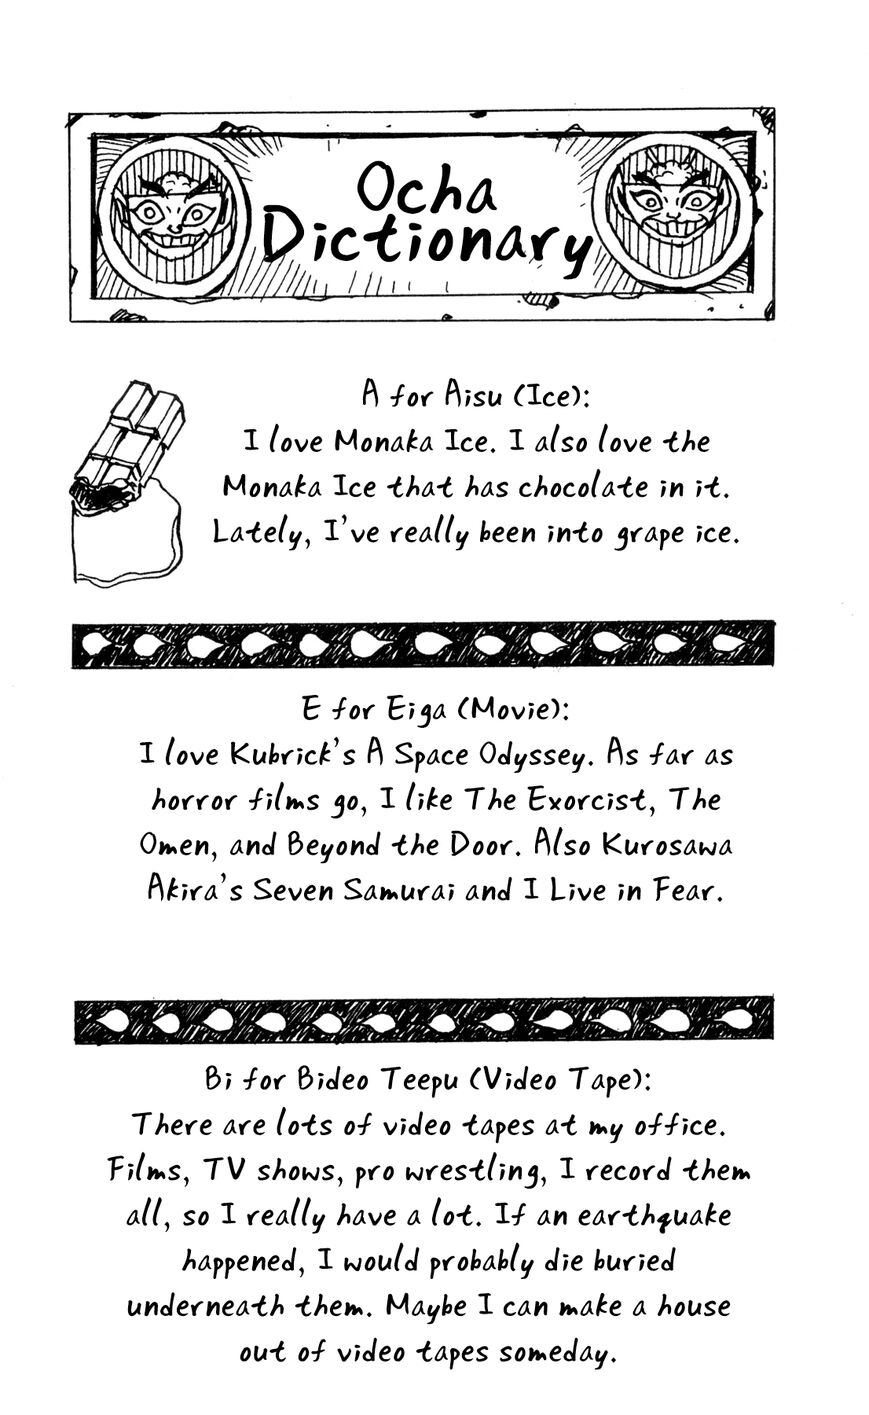 Ocha
Dictionary
A for Aisu (Ice):
I love Monaka Ice. I also love the
Monaka Ice that has chocolate in it.
Lately, I've really been into grape ice.
E for Eiga (Movie):
I love Kubrick's A Space Odyssey. As far as
horror films go, I like The Exorcist, The
Omen, and Beyond the Door. Also Kurosawa
Akira's Seven Samurai and I Live in Fear.
Bi for Bideo Teepu (Video Tape):
There are lots of video tapes at my office.
Films, TV shows, pro wrestling, I record them
all, so I really have a lot. If an earthquake
happened, I would probably die buried
underneath them. Maybe I can make a house
out of video tapes someday.